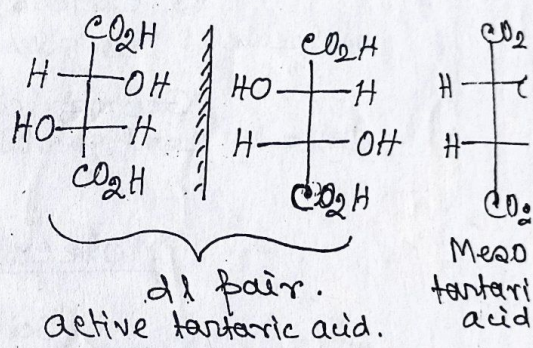 CO2H
H OH
HO H
CO2H
CO2H
HO H
H OH
CO2H
CO2
H
H
CO2
dl pair.
active tartaric acid.
Meso
tartari
acid